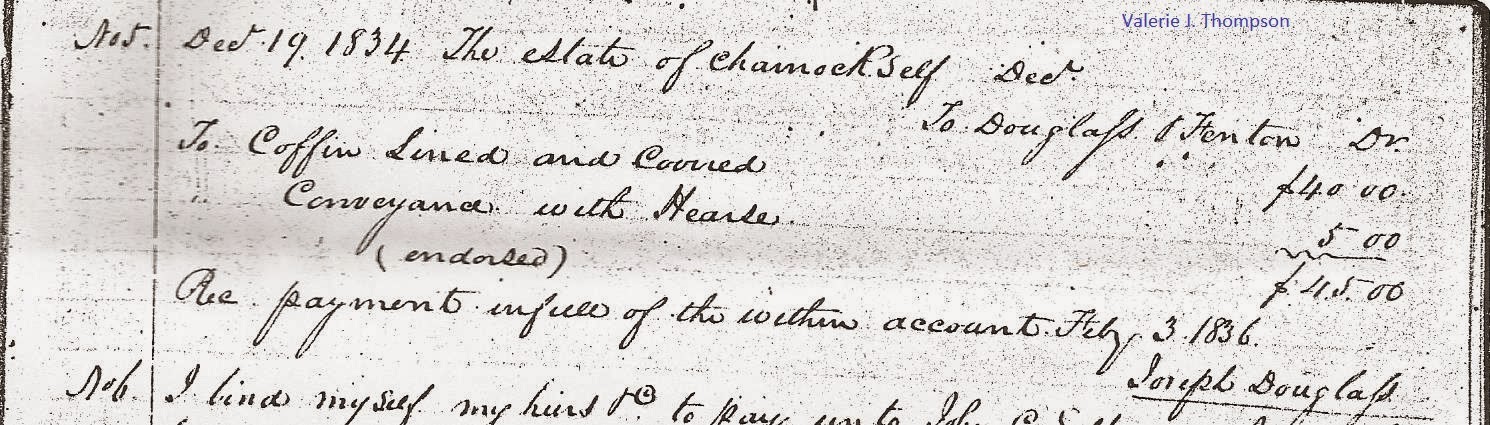 Valerie J. Thompson
No 5. Decr. 19. 1834 The estate of Charnock Self Decd.
To Douglass & Fenton Dr.
To Coffin Lined and Covred $40 00
" Conveyance with Hearse 5 00
(endorsed) $45.00
Rec payment in full of the within account Feby 3. 1836.
Joseph Douglass
No 6. I bind myself my heirs &c to pay unto John